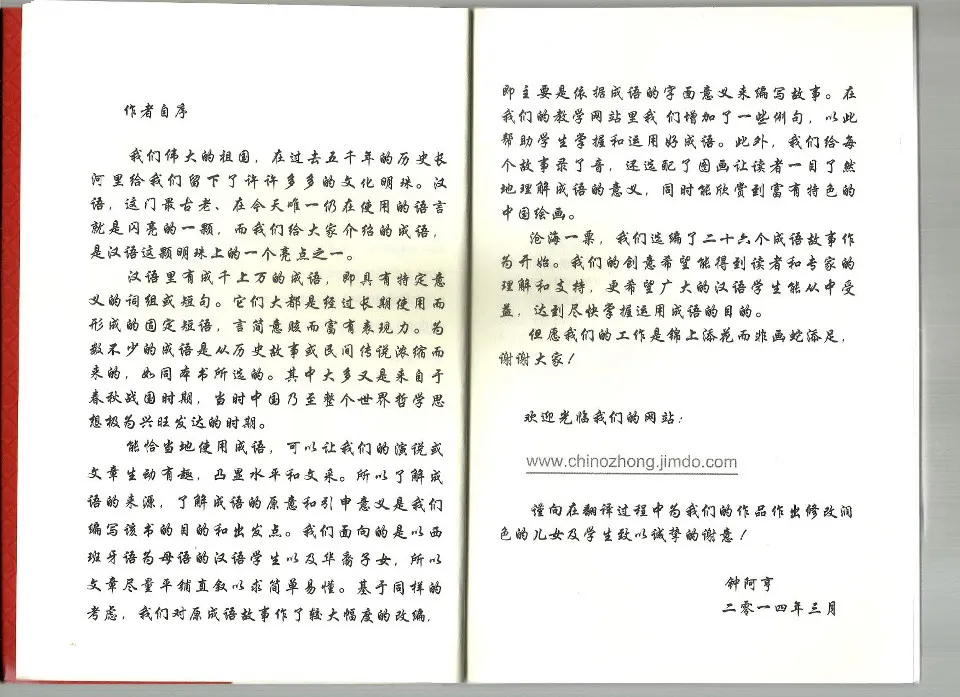 作者自序
我们伟大的祖国，在过去五千年的历史长
河里给我们留下了许许多多的文化明珠。汉
语，这门最古老、在今天唯一仍在使用的语言
就是闪亮的一颗，而我们给大家介绍的成语，
是汉语这颗明珠上的一个亮点之一。
汉语里有成千上万的成语，即具有特定意
义的词组或短句。它们大都是经过长期使用而
形成的固定短语，言简意赅而富有表现力。为
数不少的成语是从历史故事或民间传说浓缩而
来的，如同本书所选的。其中大多又是来自于
春秋战国时期，当时中国乃至整个世界哲学思
想极为兴旺发达的时期。
能恰当地使用成语，可以让我们的演说或
文章生动有趣，凸显水平和文采。所以了解成
语的来源，了解成语的原意和引申意义是我们
编写该书的目的和出发点。我们面向的是以西
班牙语为母语的汉语学生以及华裔子女，所以
文章尽量平铺直叙以求简单易懂。基于同样的
考虑，我们对原成语故事作了较大幅度的改编，
即主要是依据成语的字面意义来编写故事。在
我们的教学网站里我们增加了一些例句，以此
帮助学生掌握和运用好成语。此外，我们给每
个故事录了音，还选配了图画让读者一目了然
地理解成语的意义，同时能欣赏到富有特色的
中国绘画。
沧海一粟，我们选编了二十六个成语故事作
为开始。我们的创意希望能得到读者和专家的
理解和支持，更希望广大的汉语学生能从中受
益，达到尽快掌握运用成语的目的。
但愿我们的工作是锦上添花而非画蛇添足，
谢谢大家！
欢迎光临我们的网站：
www.chinozhong.jimdo.com
谨向在翻译过程中为我们的作品作出修改润
色的儿女及学生致以诚挚的谢意！
钟阿亨
二零一四年三月